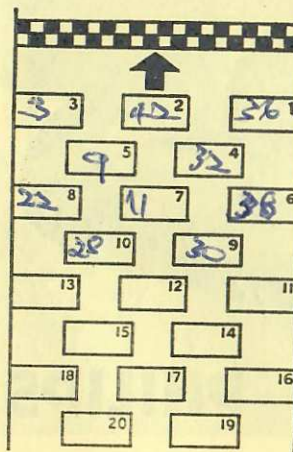 3 3 42 2 36 1
9 5 32 4
22 8 11 7 6
28 10 30 9
13 12 11
15 14
18 17 16
20 19